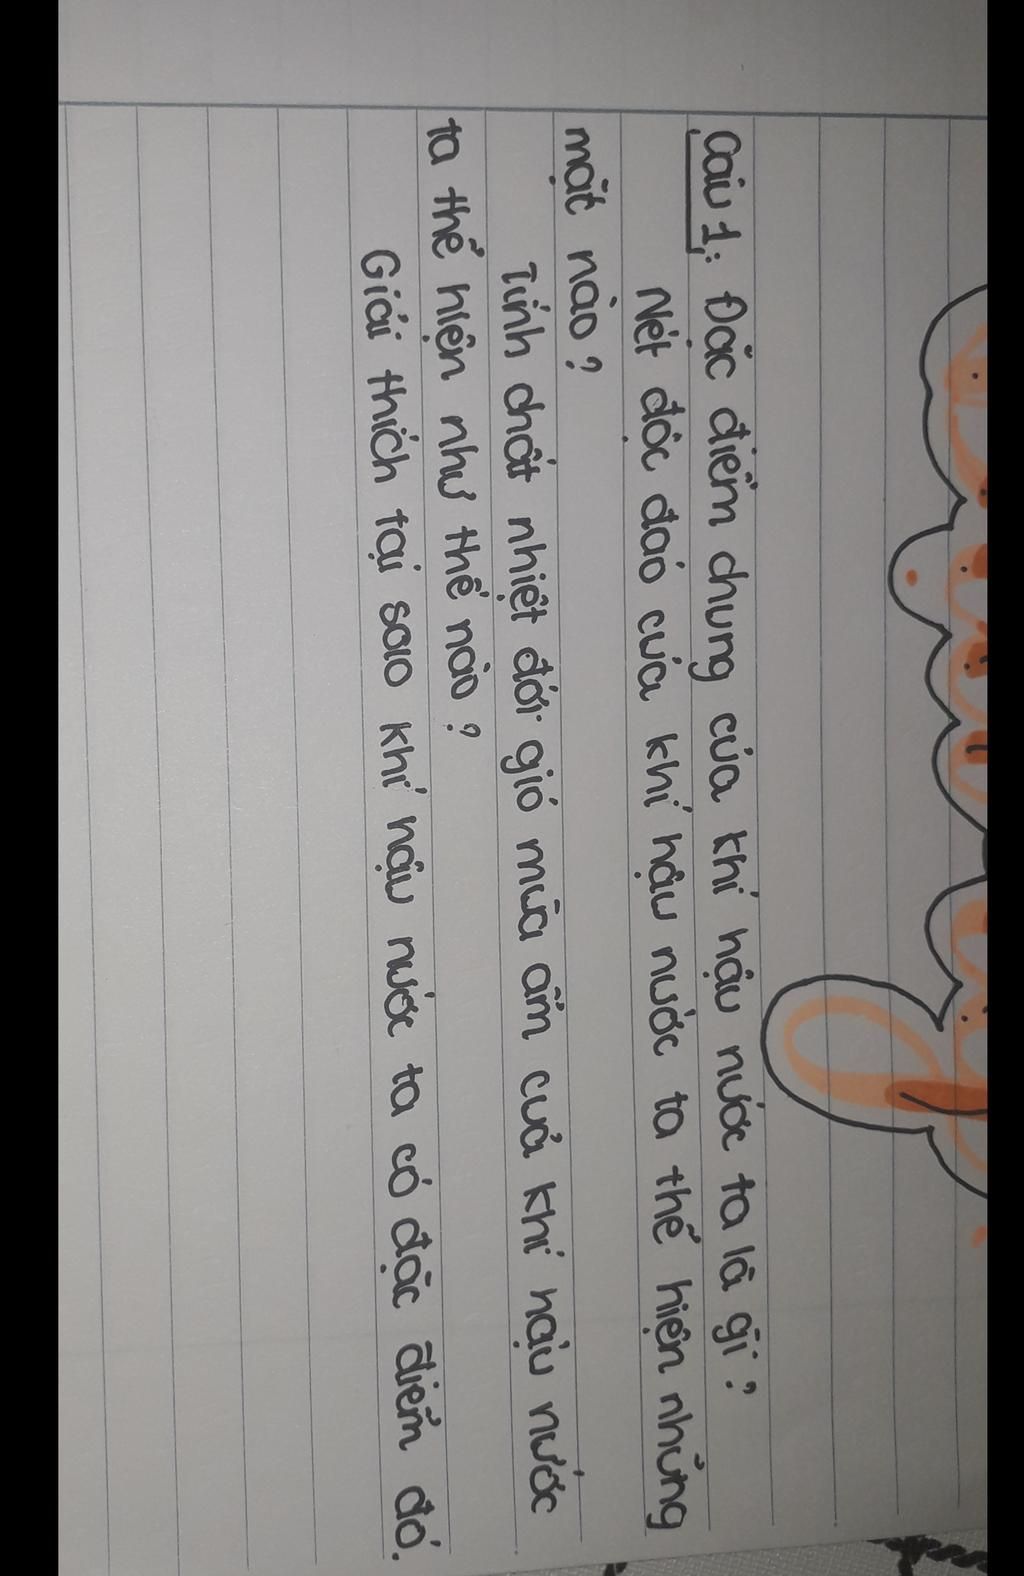 Câu 1: Đặc điểm chung của khí hậu nước ta là gì?
Nét độc đáo của khí hậu nước ta thể hiện những
mặt nào?
Tính chất nhiệt đới gió mùa ẩm của khí hậu nước
ta thể hiện như thế nào?
Giải thích tại sao khí hậu nước ta có đặc điểm đó.